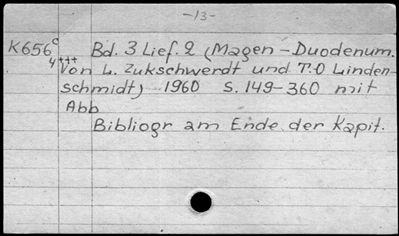 -13-
K656c Bd. 3 Lief. 2 (Magen-Duodenum.
4+++ Von L. Zukschwerdt und T.O Linden-
schmidt) 1960 S. 149-360 mit
Abb
Bibliogr am Ende der Kapit.